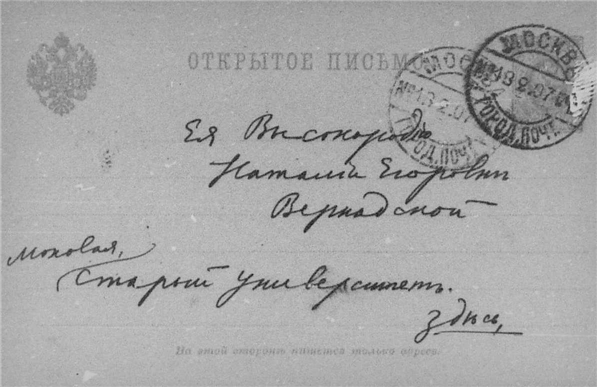 ОТКРЫТОЕ ПИСЬМО
МОСКВА
18 2.07
ГОРОД. ПОЧТ.
МОСКВА
18 2.07
ГОРОД. ПОЧТ.
Ея Высокородію
Наталіи Егоровнѣ
Вернадской
Моховая,
Старый Университетъ.
Здѣсь,
На этой сторонѣ пишется только адресъ.